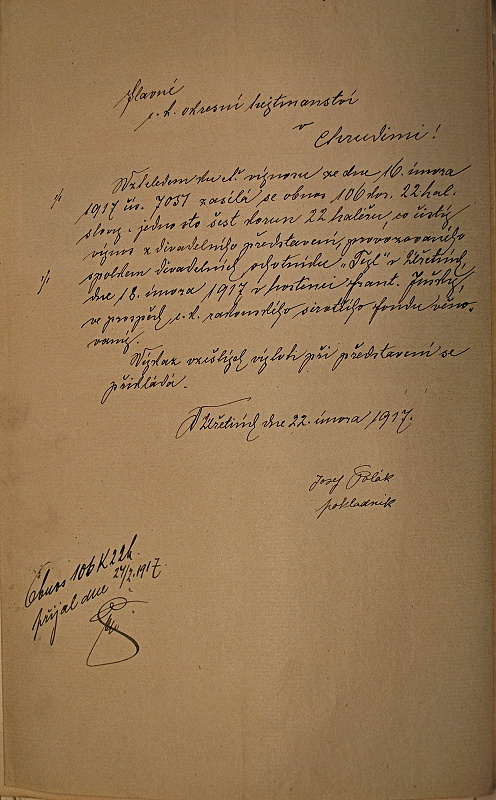 Slavné
c. k. okresní hejtmanství
v
Chrudimi!
Vzhledem ku ct. výnosu ze dne 16. února
1917 čís. 7051 zasílá se obnos 106 kor. 22 hal.
slovy: jedno sto šest korun 22 haléřů, co čistý
výnos z divadelního představení, provozovaného
spolkem divadelních ochotníků „Tyl“ v Úřetících
dne 18. února 1917 v hostinci Frant.
ve prospěch c. k. rakouského sirotčího fondu věno-
vaný.
Výkaz vzešlých výloh při představení se
přikládá.
V Úřeticích dne 22. února 1917.
Josef Polák
pokladník
Obnos 106 K 22 h.
přijal dne 24/2. 1917.